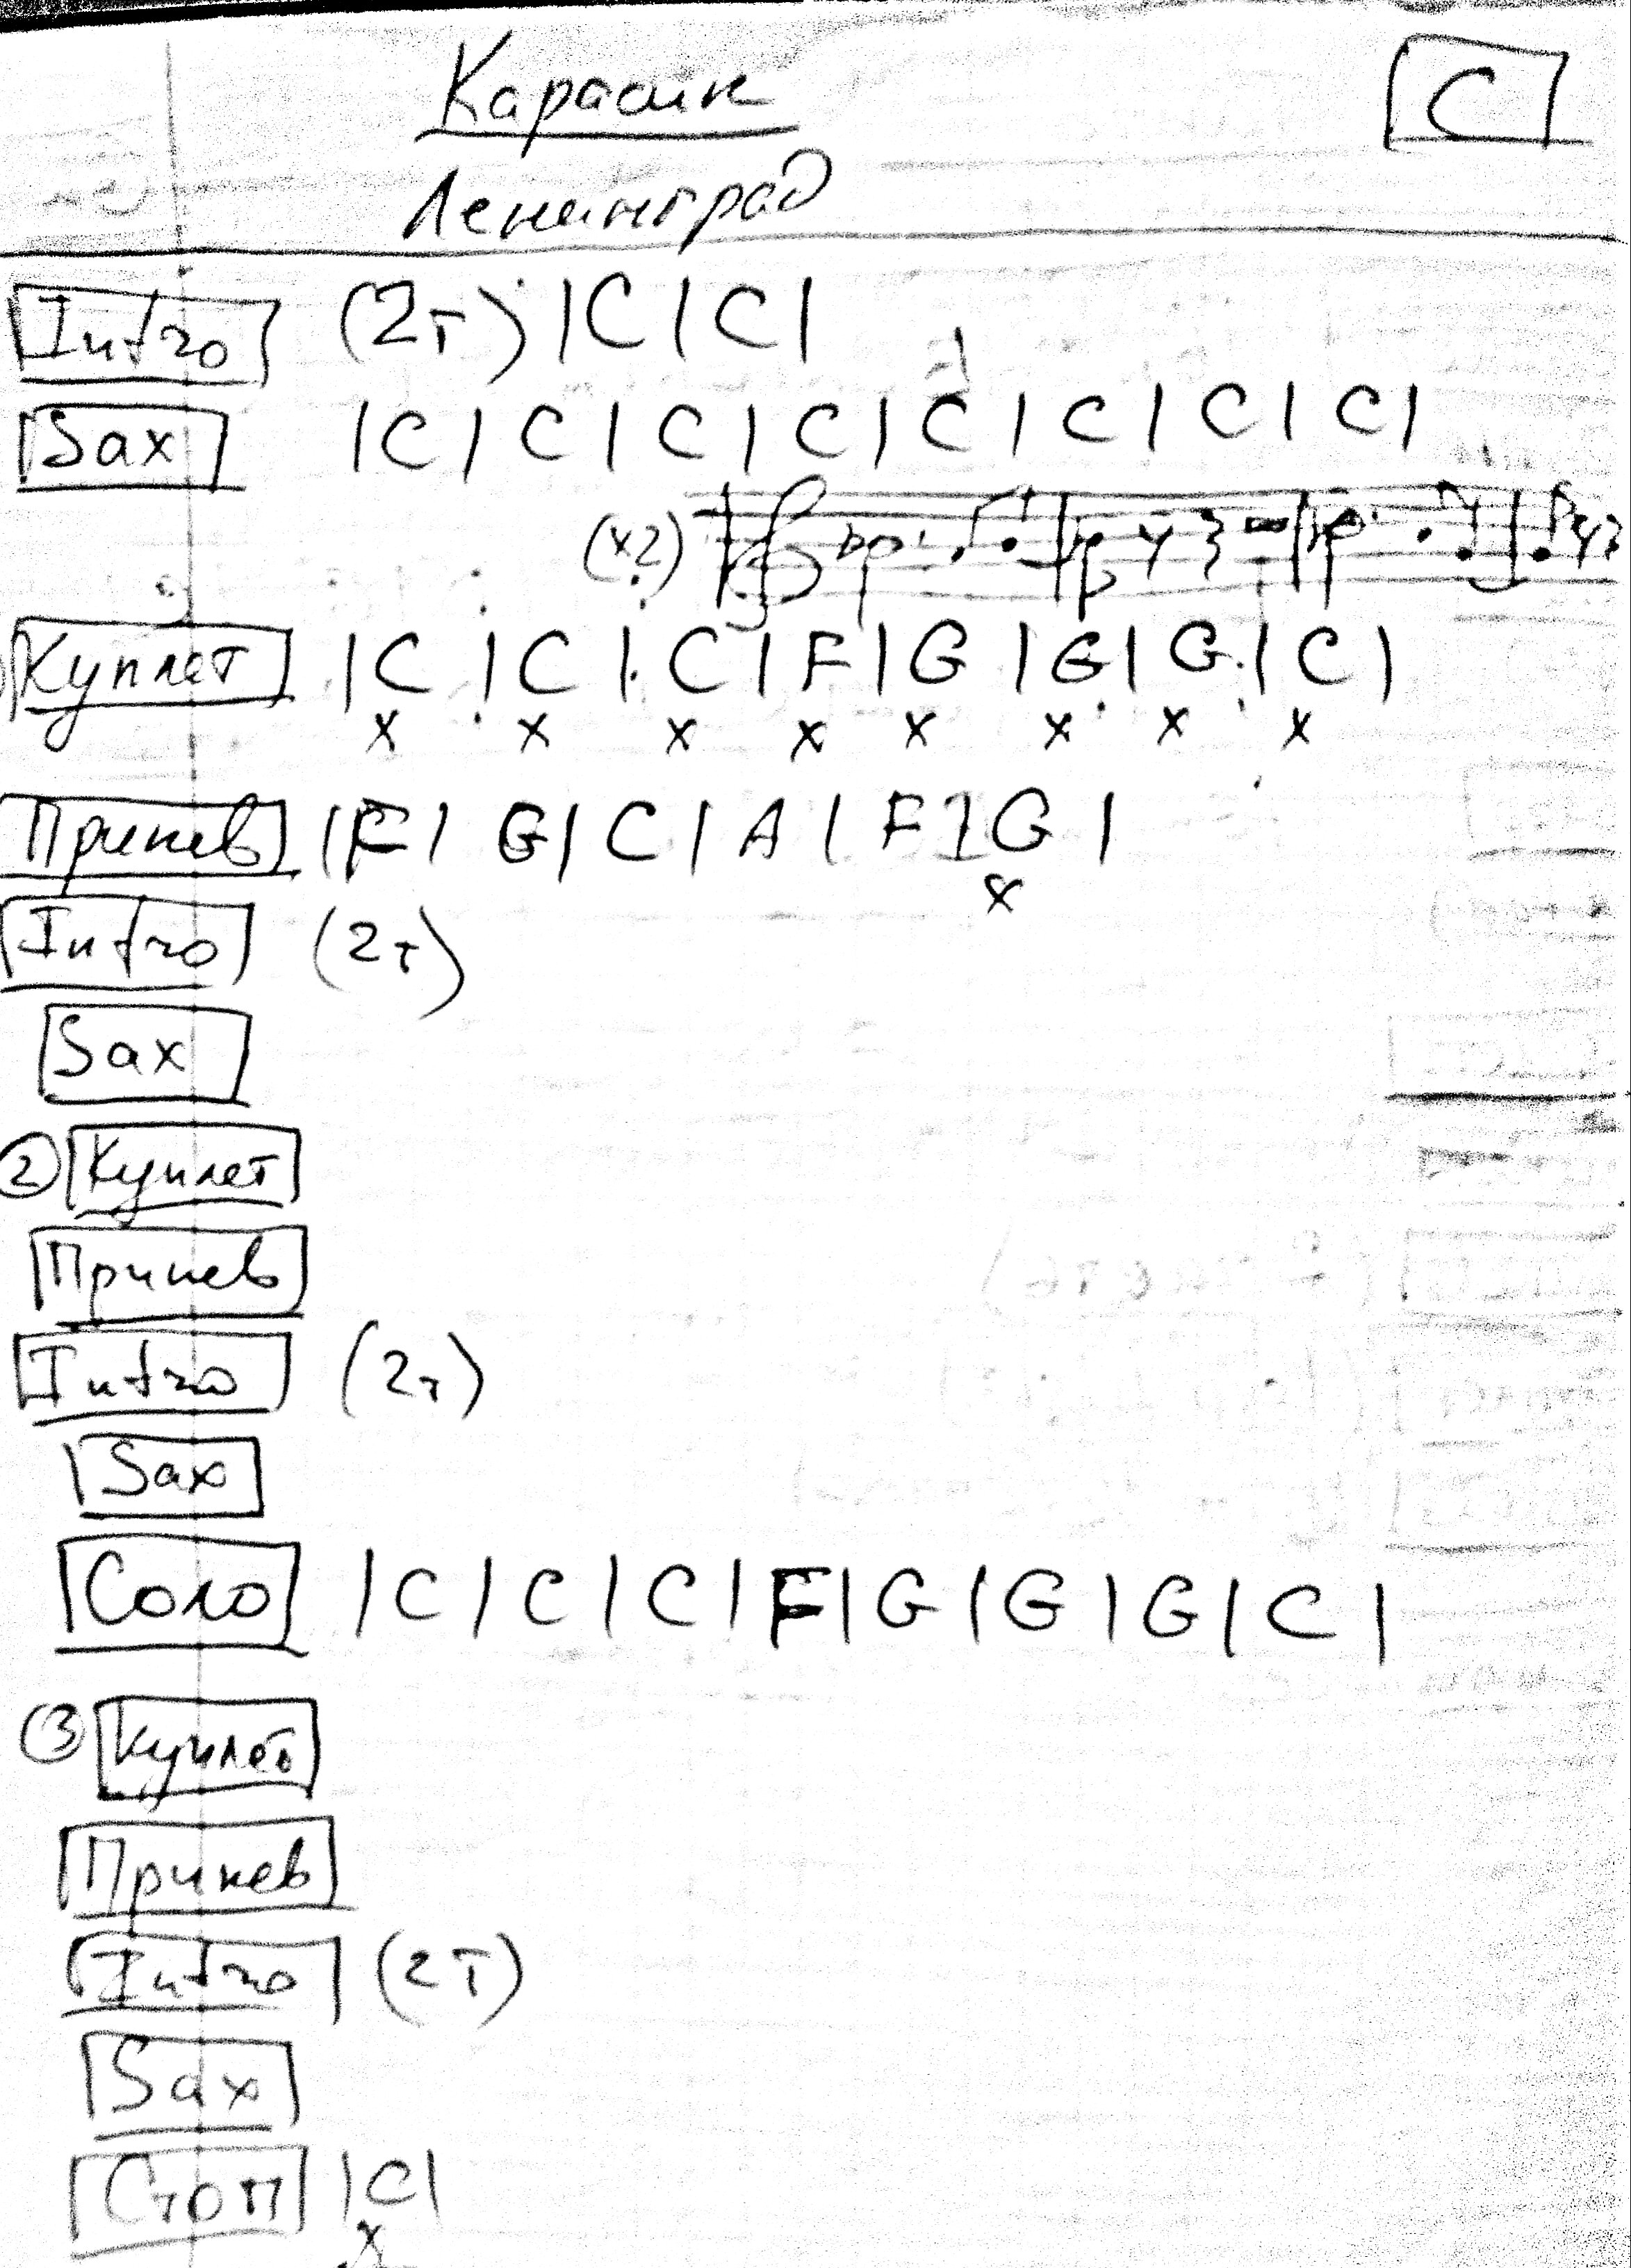 Карасик
C
Ленинград
Intro (2т) | C | C |
Sax | C | C | C | C | C | C | C | C |
(x2)
Куплет | C | C | C | F | G | G | G | C |
x x x x x x x x
Припев | F | G | C | A | F | G |
x
Intro (2т)
Sax
② Куплет
Припев
Intro (2т)
Sax
Соло | C | C | C | F | G | G | G | C |
③ Куплет
Припев
Intro (2т)
Sax
Стоп | C |
x